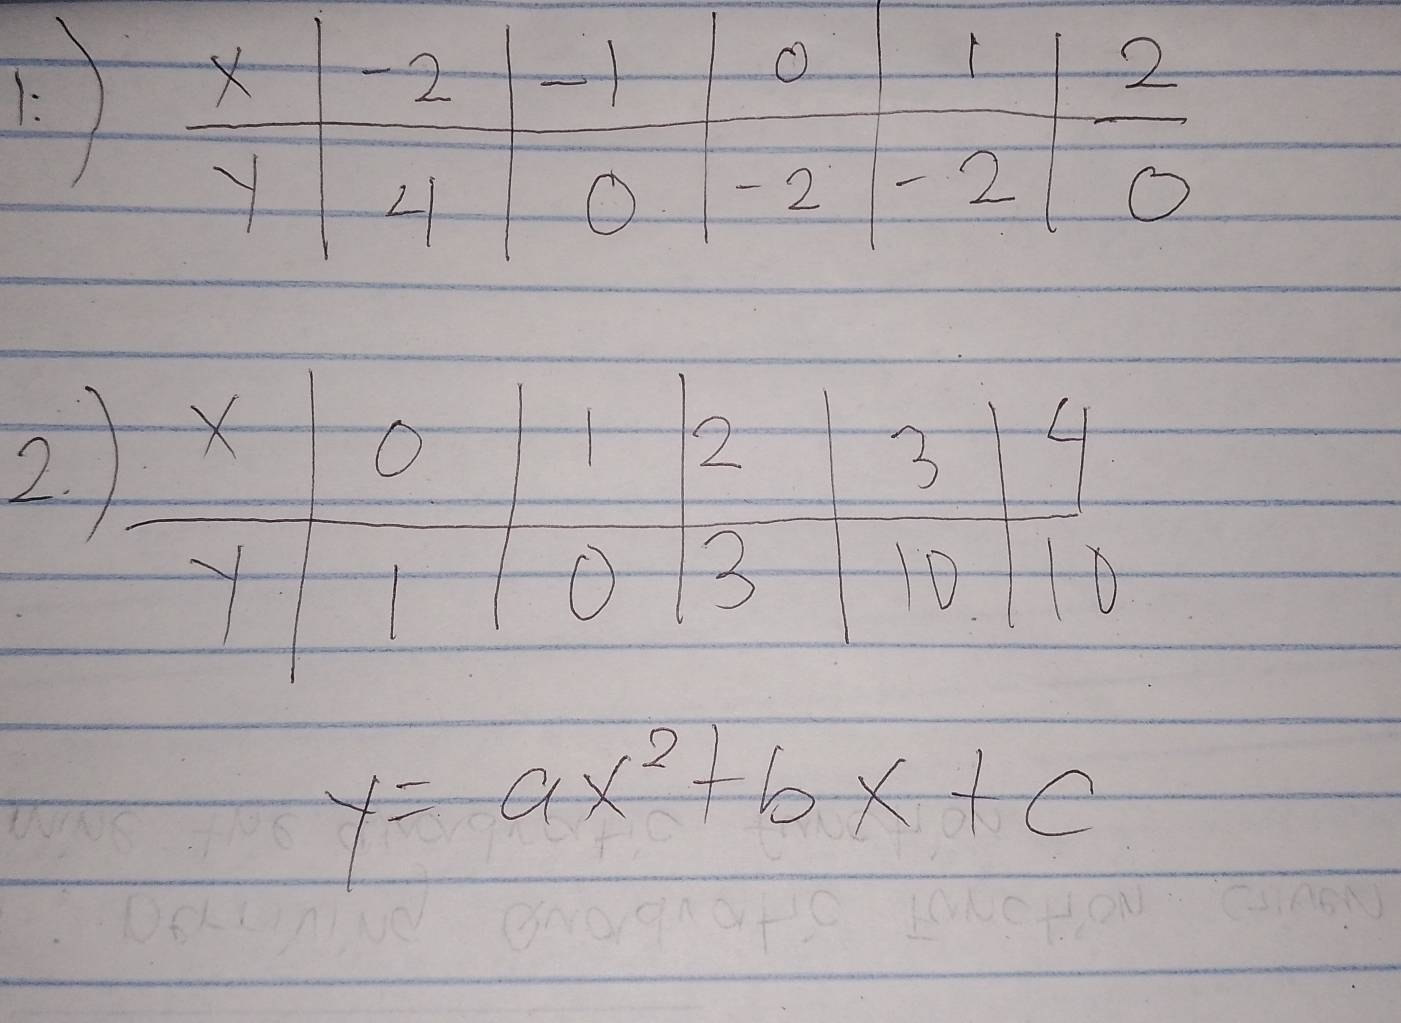 1.) X | -2 | -1 | 0 | 1 | 2
Y | 4 | 0 | -2 | -2 | 0
2.) X | 0 | 1 | 2 | 3 | 4
Y | 1 | 0 | 3 | 10 | 10
y = ax² + bx + c